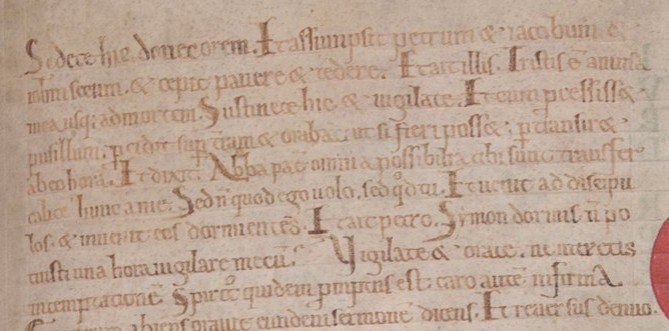 Sedete hic donec orem. Et assumpsit petrum & iacobum &
iohm secum. & cepit pavere & tedere. Et ait illis. Tristis ē anima
mea usq; ad mortem. Sustinete hic & vigilate. Et cum pcessiss&
pusillum. pcidit sup tram & orabat. ut si fieri poss&. ptransir&
ab eo hora. Et dixit. Abba pat omnia possibilia tibi sunt. transfer
calicē hunc a me. Sed n̄ quod ego volo. sed qd tu. Et venit ad discipu
los. & invenit eos dormientes. Et ait petro. Symon dormis n̄ po
tuisti una hora vigilare mecū. Vigilate & orate. ne intretis
in temptationē. Spirit; quidem pmptus est. caro autē infirma
abiens oravit eundem sermonē dicens. Et reversus denuo.